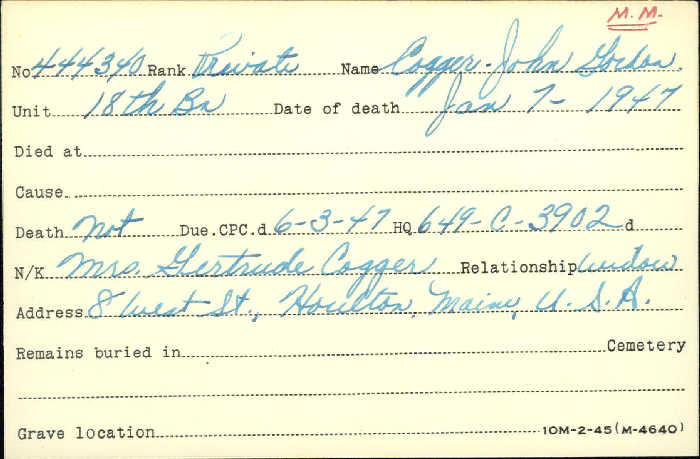 M.M.
No 444340 Rank Private Name Cogger - John Gordon.
Unit 18th Bn Date of death Jan 7 - 1947
Died at
Cause
Death not Due.CPC.d 6-3-47 HQ 649-C-3902 d
N/K Mrs. Gertrude Cogger Relationship widow
Address 8 West St., Houlton, Maine, U.S.A.
Remains buried in Cemetery
Grave location 10M-2-45(M-4640)